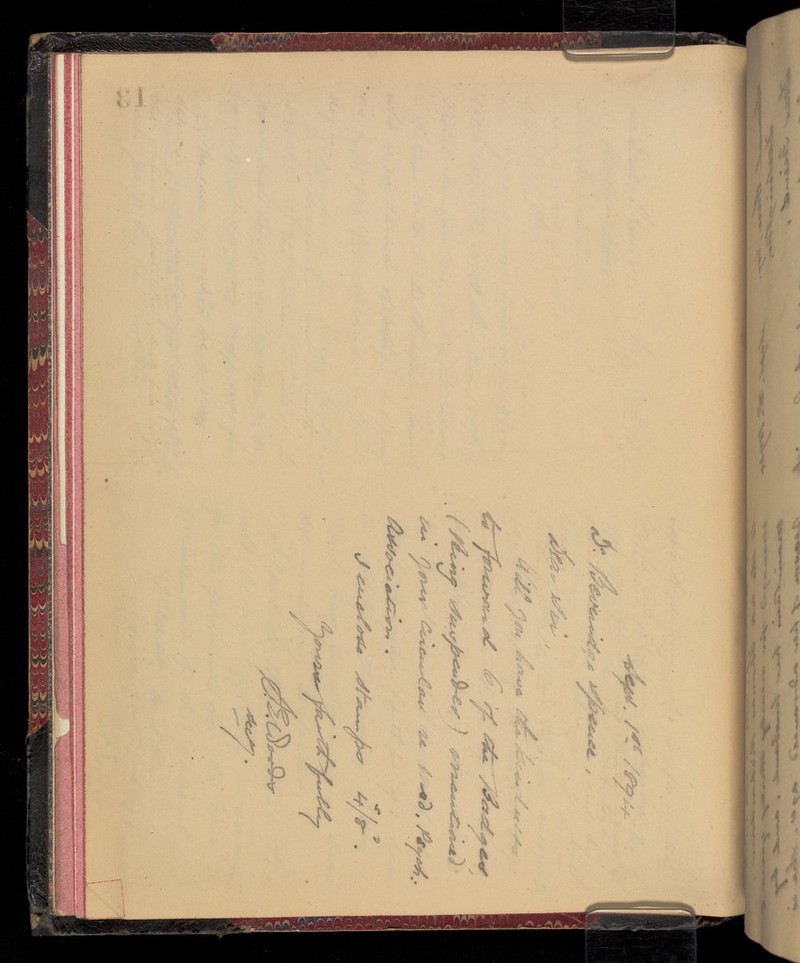 Sep. 1st 1894
Dr. Beveridge Spence,
Dear Sir,
Will you have the kindness
to forward 6 of the Badges
(Ring Suspender) mentioned
in your Circular re Med. Psych.
Association.
I enclose Stamps 4s/8d.
Yours faithfully
Woods
13